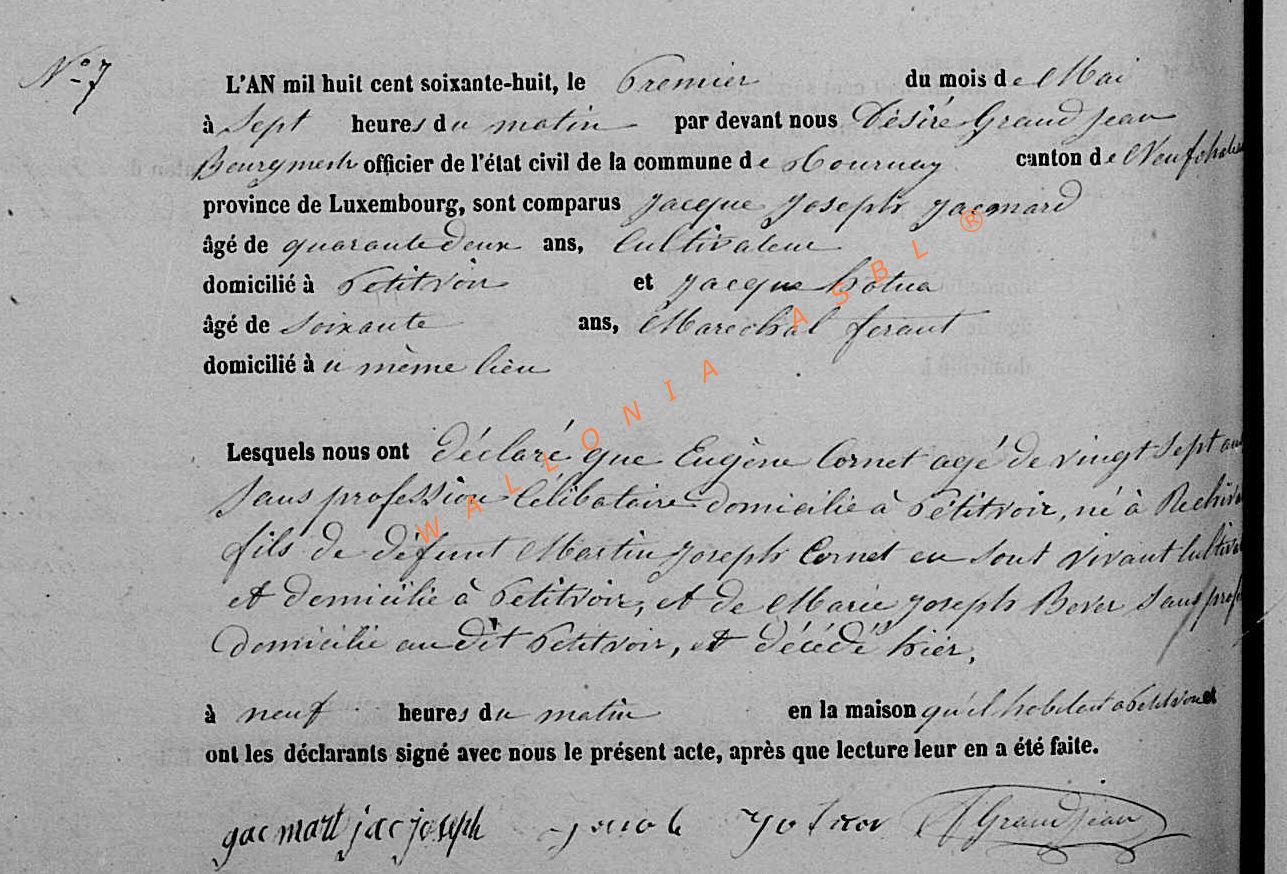 N° 7
L'AN mil huit cent soixante-huit, le Premier du mois de Mai
à Sept heures du matin par devant nous Désiré Grandjean
Bourgmestr officier de l'état civil de la commune de Tournay canton de Neufchateau
province de Luxembourg, sont comparus Jacque Joseph Jacmard
âgé de quarante deux ans, Cultivateur
domicilié à Petitvoir et Jacque
âgé de Soixante ans, Marechal ferant
domicilié à u même lieu
Lesquels nous ont déclaré que Eugène Cornet agé de vingt Sept ans
Sans profession Célibataire domicilié à Pétitvoir, né à
fils de défunt Martin Joseph Cornet en sont vivant
et domicilié à Petitvoir, et de Marie Joseph Bever Sans
Domicilié au dit Petitvoir, est décédé hier,
à neuf heures du matin en la maison qu'il habitait a Petitvoir et
ont les déclarants signé avec nous le présent acte, après que lecture leur en a été faite.
gacmart jacjoseph Grandjean
WALLONIA ASBL ®